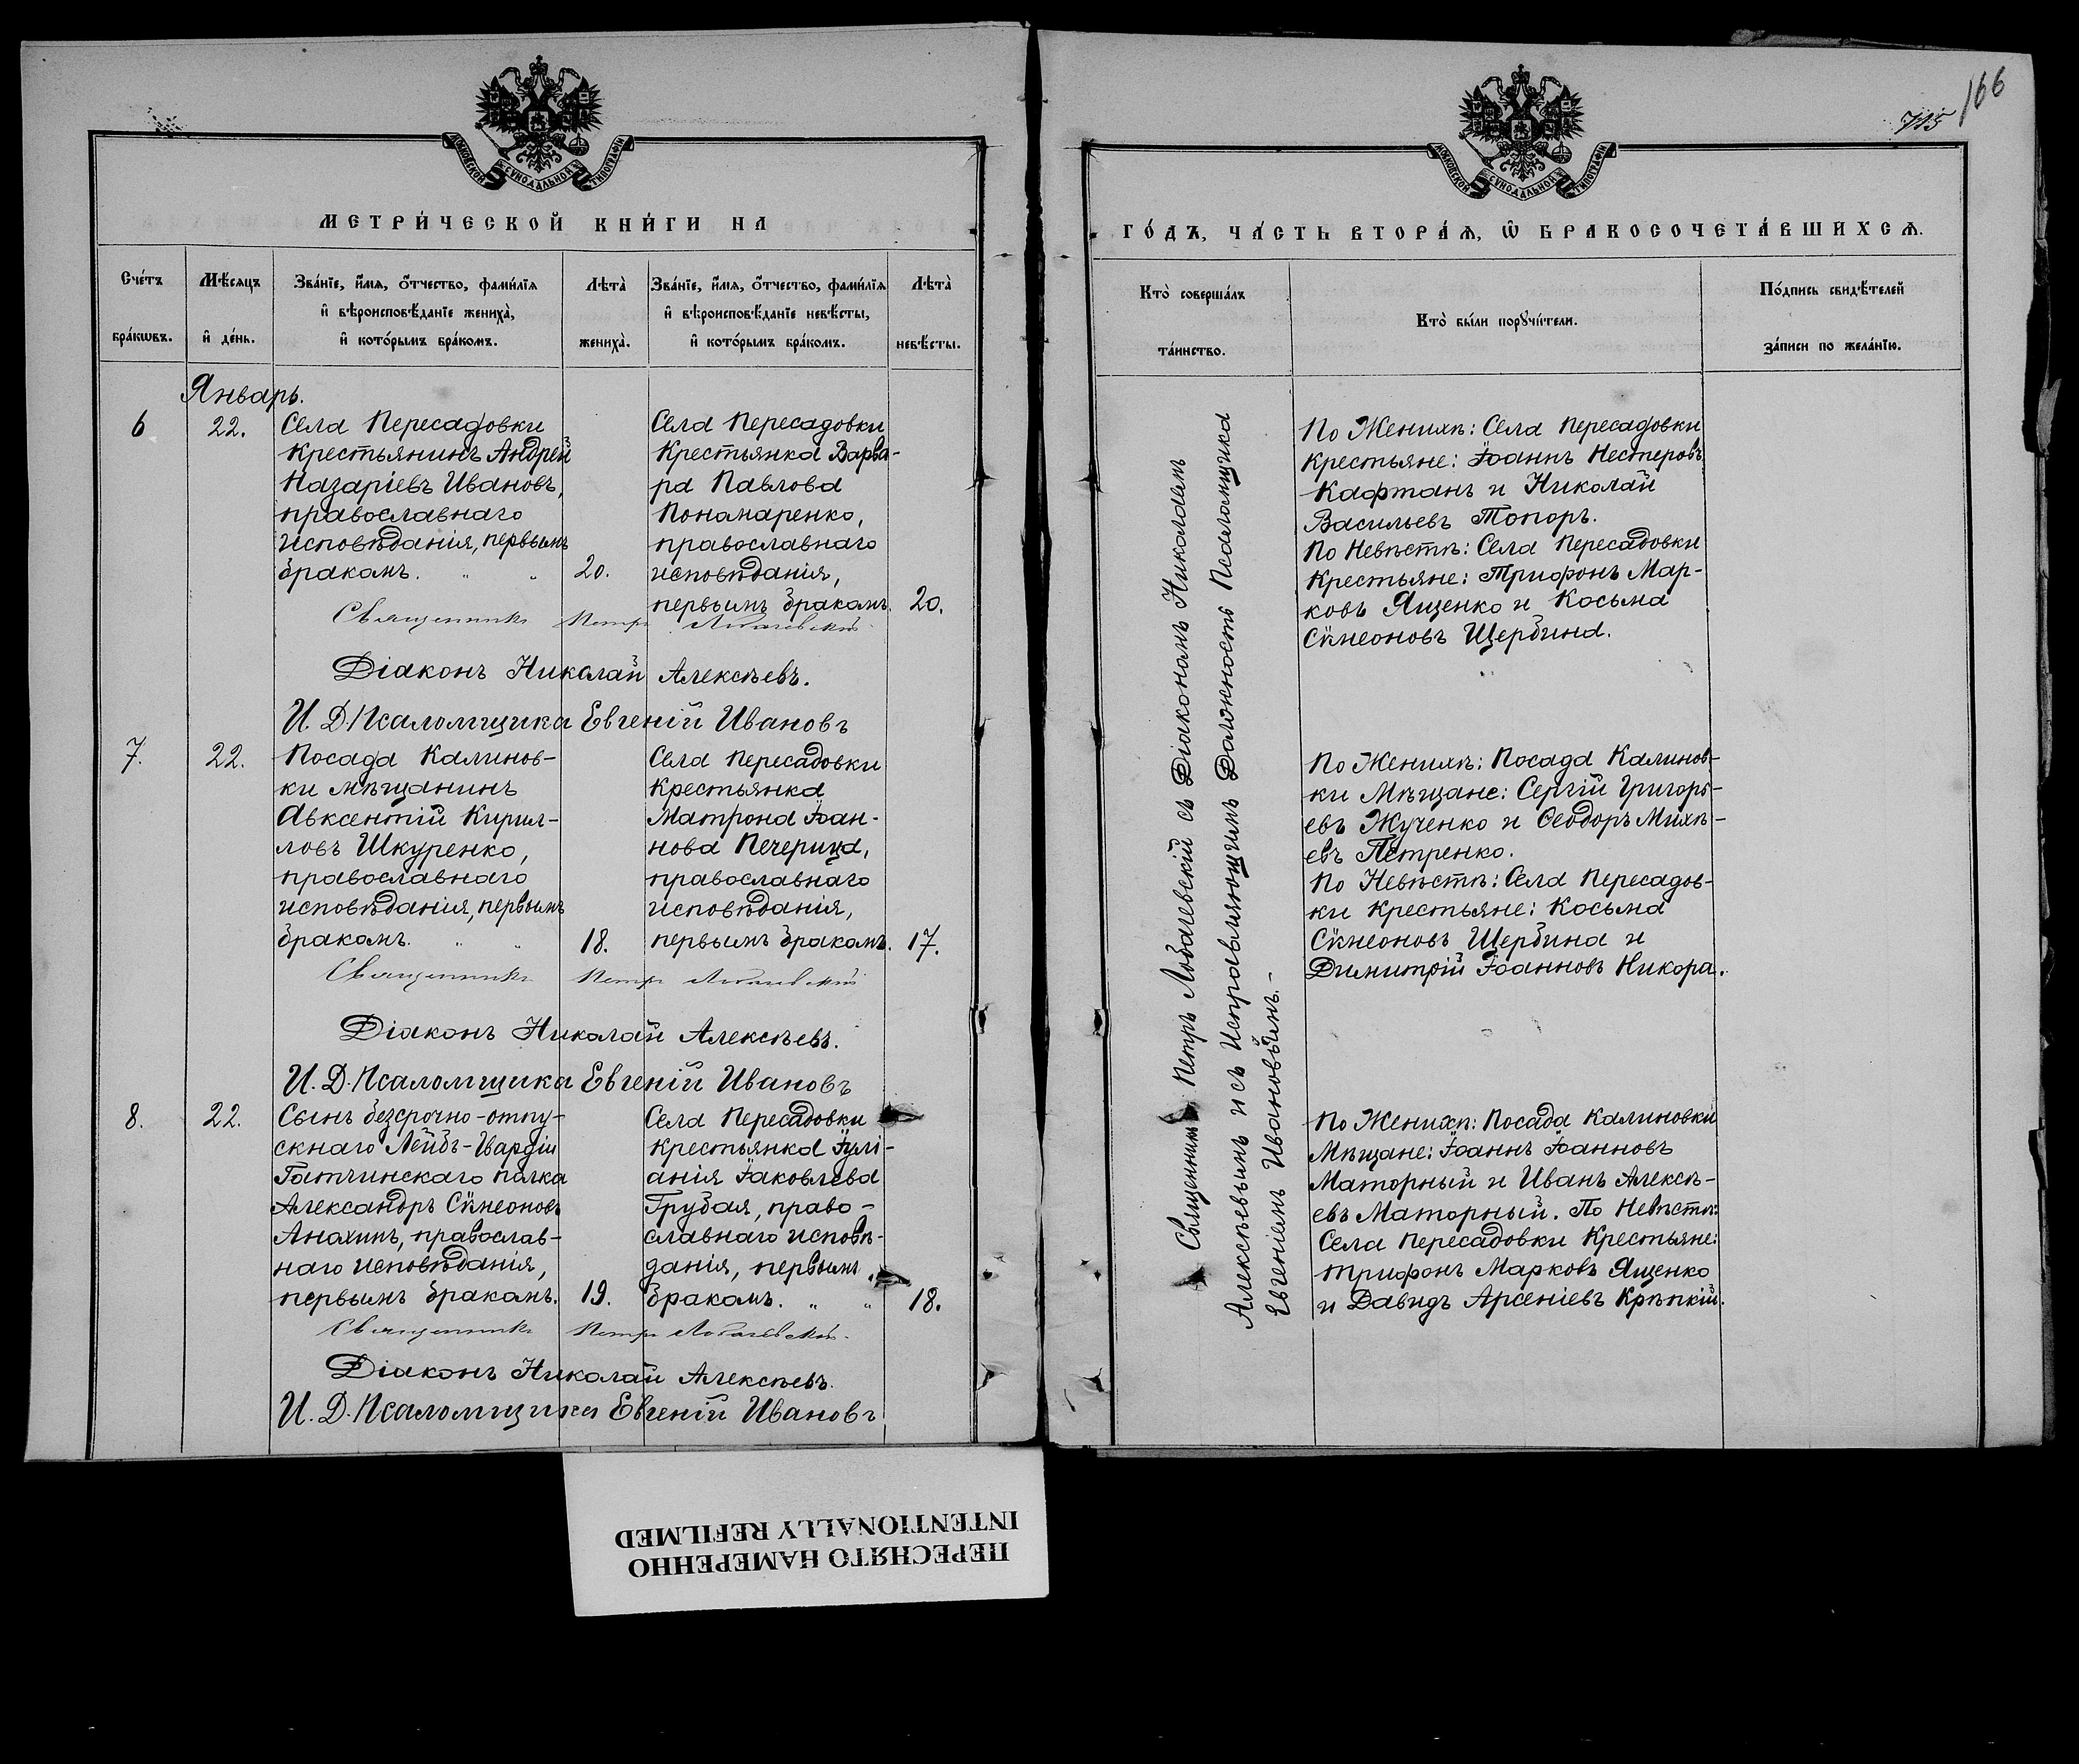 МОСКОВСКОЙ СѴНОДАЛЬНОЙ ТИПОГРАФІИ
МЕТРИ́ЧЕСКОЙ КНИ́ГИ НА
Сче́тъ
бра́кѡвъ.
Мѣ́сяцъ
и҆ де́нь.
Зва́нїе, и҆́мѧ, ѻ҆́тчество, фами́лїѧ
и҆ вѣроисповѣ́данїе женихà,
и҆ кото́рымъ бра́комъ.
Лѣтà
женихà.
Зва́нїе, и҆́мѧ, ѻ҆́тчество, фами́лїѧ
и҆ вѣроисповѣ́данїе невѣ́сты,
и҆ кото́рымъ бра́комъ.
Лѣтà
невѣ́сты.
Январь.
6
22.
Села Пересадовки
Крестьянинъ Андрей
Назаріевъ Ивановъ,
православнаго
исповѣданія, первымъ
бракомъ. " "
20.
Села Пересадовки
Крестьянка Варва-
ра Павлова
Пономаренко,
православнаго
исповѣданія,
первымъ бракомъ.
20.
Священникъ Петръ Лобачевскій
Діаконъ Николай Алексѣевъ.
И. Д. Псаломщика Евгеній Ивановъ
7.
22.
Посада Калинов-
ки мѣщанинъ
Авксентій Кирил-
ловъ Шкуренко,
православнаго
исповѣданія, первымъ
бракомъ. " "
18.
Села Пересадовки
Крестьянка
Матрона Іоан-
нова Печерица,
православнаго
исповѣданія,
первымъ бракомъ.
17.
Священникъ Петръ Лобачевскій
Діаконъ Николай Алексѣевъ.
И. Д. Псаломщика Евгеній Ивановъ
8.
22.
Сынъ безсрочно-отпу-
скнаго Лейбъ-Гвардіи
Гатчинскаго полка
Александръ Сѵмеоновъ
Анохинъ, православ-
наго исповѣданія,
первымъ бракомъ.
19.
Села Пересадовки
крестьянка Іулі-
анія Іаковлева
Грубая, право-
славнаго исповѣ-
данія, первымъ
бракомъ. " "
18.
Священникъ Петръ Лобачевскій.
Діаконъ Николай Алексѣевъ.
И. Д. Псаломщика Евгеній Ивановъ
166
715
МОСКОВСКОЙ СѴНОДАЛЬНОЙ ТИПОГРАФІИ
ГО́ДЪ, ЧА́СТЬ ВТОРА́Ѧ, Ѡ҆ БРАКОСОЧЕТА́ВШИХСѦ.
Кто̀ соверша́лъ
та́инство.
Кто̀ бы́ли порꙋчи́тели.
По́дпись свидѣ́телей
за́писи по жела́нїю.
Священникъ Петръ Лобачевскій съ Діакономъ Николаемъ
Алексѣевымъ и съ Исправляющимъ Должность Псаломщика
Евгеніемъ Ивановымъ.-
По Женихѣ: Села Пересадовки
Крестьяне: Іоаннъ Нестеровъ
Кафтанъ и Николай
Васильевъ Топоръ.
По Невѣстѣ: Села Пересадовки
Крестьяне: Трифонъ Мар-
ковъ Ященко и Косьма
Сѵмеоновъ Щербина.
По Женихѣ: Посада Калинов-
ки Мѣщане: Сергій Григорь-
евъ Жученко и Ѳеодоръ Михѣ-
евъ Петренко.
По Невѣстѣ: Села Пересадов-
ки Крестьяне: Косьма
Сѵмеоновъ Щербина и
Димитрій Іоанновъ Никора.
По Женихѣ: Посада Калиновки
Мѣщане: Іоаннъ Іоанновъ
Маторный и Иванъ Алексѣ-
евъ Маторный. По Невѣстѣ:
Села Пересадовки Крестьяне:
Трифонъ Марковъ Ященко
и Давидъ Арсеніевъ Крѣпкій.
ПЕРЕСНЯТО НАМЕРЕННО
INTENTIONALLY REFILMED